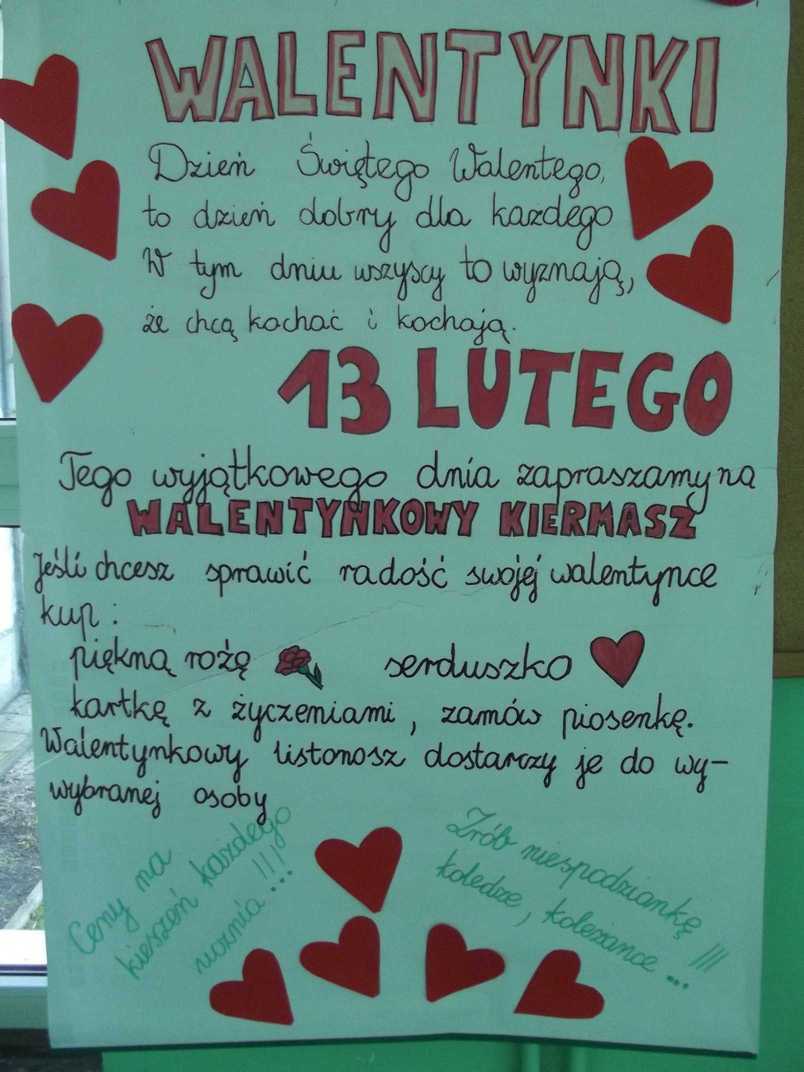 WALENTYNKI
Dzień Świętego Walentego,
to dzień dobry dla każdego
W tym dniu wszyscy to wyznają,
że chcą kochać i kochają.
13 LUTEGO
Tego wyjątkowego dnia zapraszamy na
WALENTYNKOWY KIERMASZ
Jeśli chcesz sprawić radość swojej walentynce
kup:
piękną różę serduszko
kartkę z życzeniami, zamów piosenkę.
Walentynkowy listonosz dostarczy je do wy-
wybranej osoby
Ceny na
kieszeń każdego
ucznia !!!...
Zrób niespodziankę
koledze, koleżance ... !!!